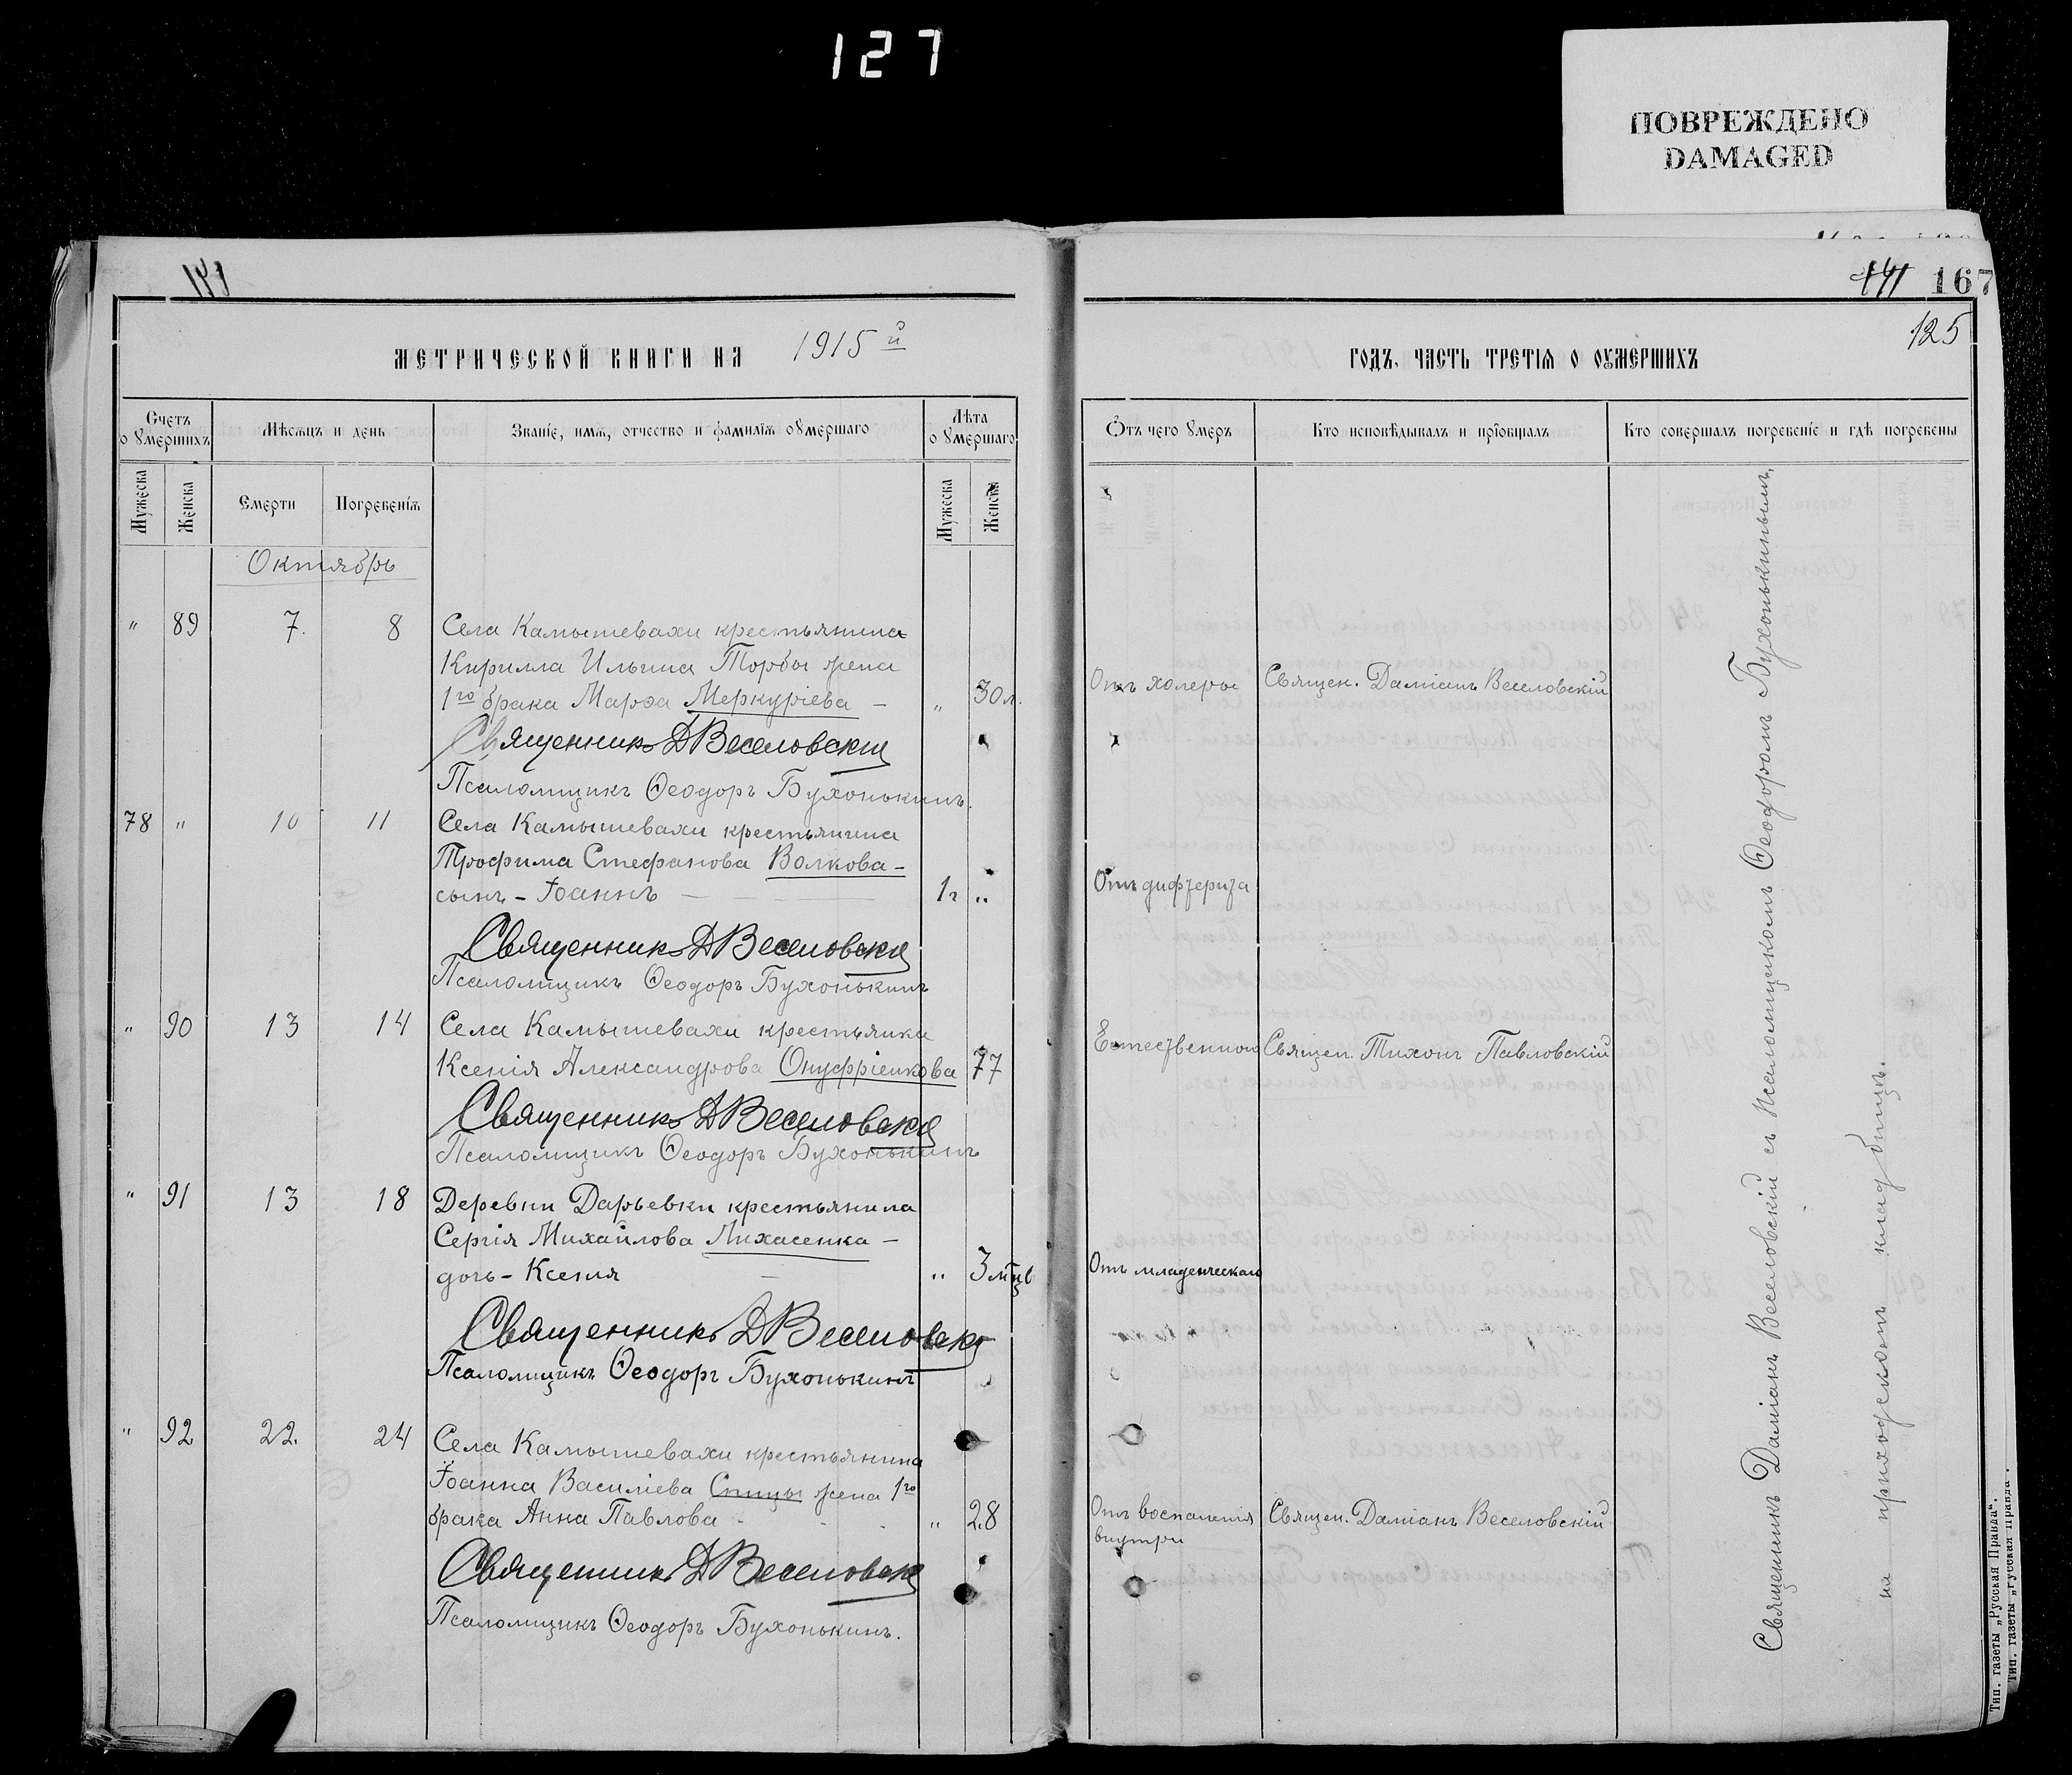 127
ПОВРЕЖДЕНО
DAMAGED
141
141 167
125
МЕТРИЧЕСКОЙ КНИГИ НА 1915й
ГОДЪ. ЧАСТЬ ТРЕТІѦ О ОУМЕРШИХЪ
Счетъ о умершихъ
Мѣсѧцъ и день
Званіе, имѧ, отчество и фамиліѧ оумершаго
Лѣта оумершаго
Отъ чего умеръ
Кто исповѣдывалъ и пріобщалъ
Кто совершалъ погребеніе и гдѣ погребены
Мужеска
Женска
Смерти
Погребеніѧ
Мужеска
Женска
Октябрь
" 89 7. 8 Села Камышевахи крестьянина
Кирилла Ильина Торбы жена
1го брака Марѳа Меркуріева – " 30 л. Отъ холеры Священ. Даміанъ Веселовскій
Священникъ Д Веселовскій
Псаломщикъ Ѳеодоръ Бухонькинъ.
78 " 10 11 Села Камышевахи крестьянина
Трофима Стефанова Волкова –
сынъ – Іоаннъ – 1 г " Отъ дифтерита
Священникъ Д Веселовскій
Псаломщикъ Ѳеодоръ Бухонькинъ
" 90 13 14 Села Камышевахи крестьянка
Ксенія Александрова Онуфріенкова 77 Естественной Священ. Тихонъ Павловскій
Священникъ Д Веселовскій
Псаломщикъ Ѳеодоръ Бухонькинъ
" 91 13 18 Деревни Дарьевки крестьянина
Сергія Михайлова Лихасенка –
дочь – Ксенія – " 3 мцѣ Отъ младенческаго
Священникъ Д Веселовскій
Псаломщикъ Ѳеодоръ Бухонькинъ
" 92 22. 24 Села Камышевахи крестьянина
Іоанна Василіева Спицы жена 1го
брака Анна Павлова " 28 Отъ воспаленія Священ. Даміанъ Веселовскій
внутри
Священникъ Д Веселовскій
Псаломщикъ Ѳеодоръ Бухонькинъ.
Священникъ Даміанъ Веселовскій съ псаломщикомъ Ѳеодоромъ Бухонькинымъ,
на приходскомъ кладбищѣ.
Тип. газеты „Русская Правда“.
Тип. газеты „Русская Правда“.